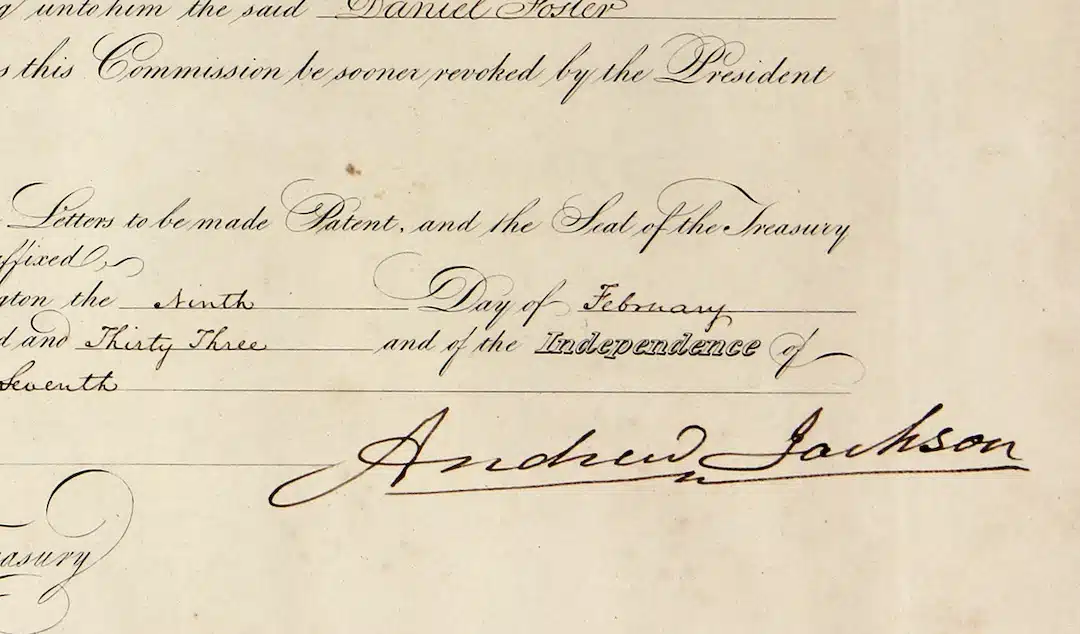 unto him the said Daniel Foster
s this Commission be sooner revoked by the President
Letters to be made Patent, and the Seal of the Treasury
affixed
gton the Ninth Day of February
d and Thirty Three and of the Independence of
Seventh
Andrew Jackson
easury